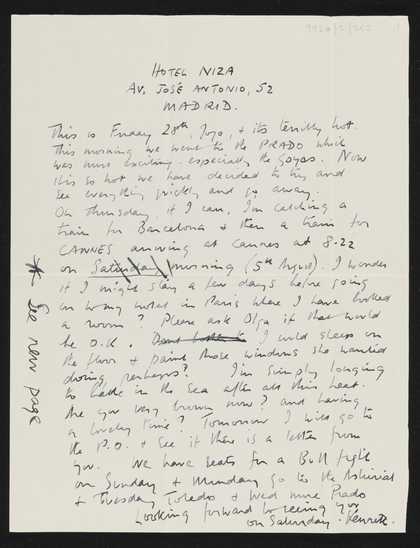 HOTEL NIZA
AV. JOSÉ ANTONIO, 52
MADRID.
This is Friday 28th, Jojo, & its terribly hot.
This morning we went to the PRADO which
was most exciting especially the Goyas. Now
its so hot we have decided to try and
see everything quickly and go away.
On Thursday, if I can, I'm catching a
train for Barcelona & then a train for
CANNES arriving at Cannes at 8.22
on Saturday morning (5th August). I wonder
if I might stay a few days before going
on to my hotel in Paris where I have booked
a room? Please ask Olga if that would
be O.K. I could sleep on
the floor & paint those windows she wanted
doing perhaps? I'm simply longing
to bathe in the sea after all this heat.
Are you very brown now? and having
a lovely time? Tomorrow I will go to
the P.O. & see if there is a letter from
you. We have seats for a Bull fight
on Sunday & Monday go to the
& Tuesday Toledo & Wed more Prado
Looking forward to seeing you
on Saturday. Kenneth.
* See new page